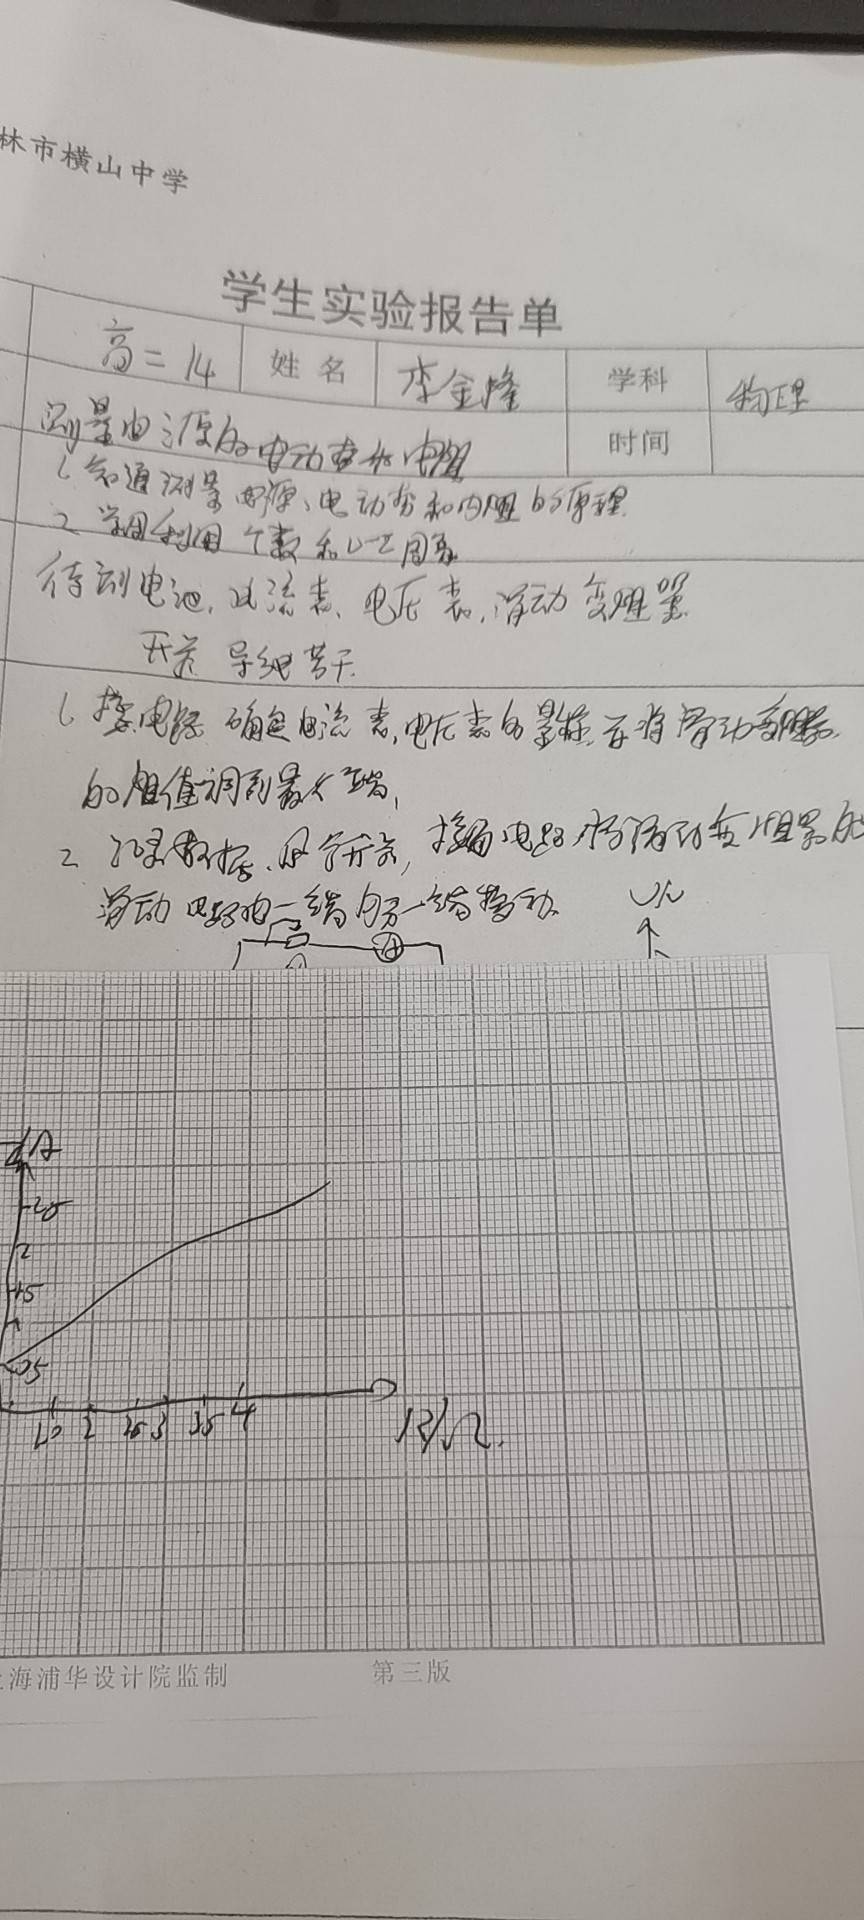 林市横山中学
学生实验报告单
高二 14 姓名 李金峰 学科 物理
测量电源的电动势和内阻 时间
1. 知道测量电源、电动势和内阻的原理
2. 学用利用 和U-I图象
待测电池、电流表、电压表、滑动变阻器
开关 导线若干
1. 接电路 确定电流表,电压表的量程 并将滑动变阻器
的阻值调到最大端,
2 记录数据、闭合开关, 接通电路 将滑动变阻器的
滑动 由一端向另一端移动.
A
U/V
I/A
2.5
2
1.5
1
0.5
2 2.5 3 3.5 4
R/Ω.
上海浦华设计院监制 第三版